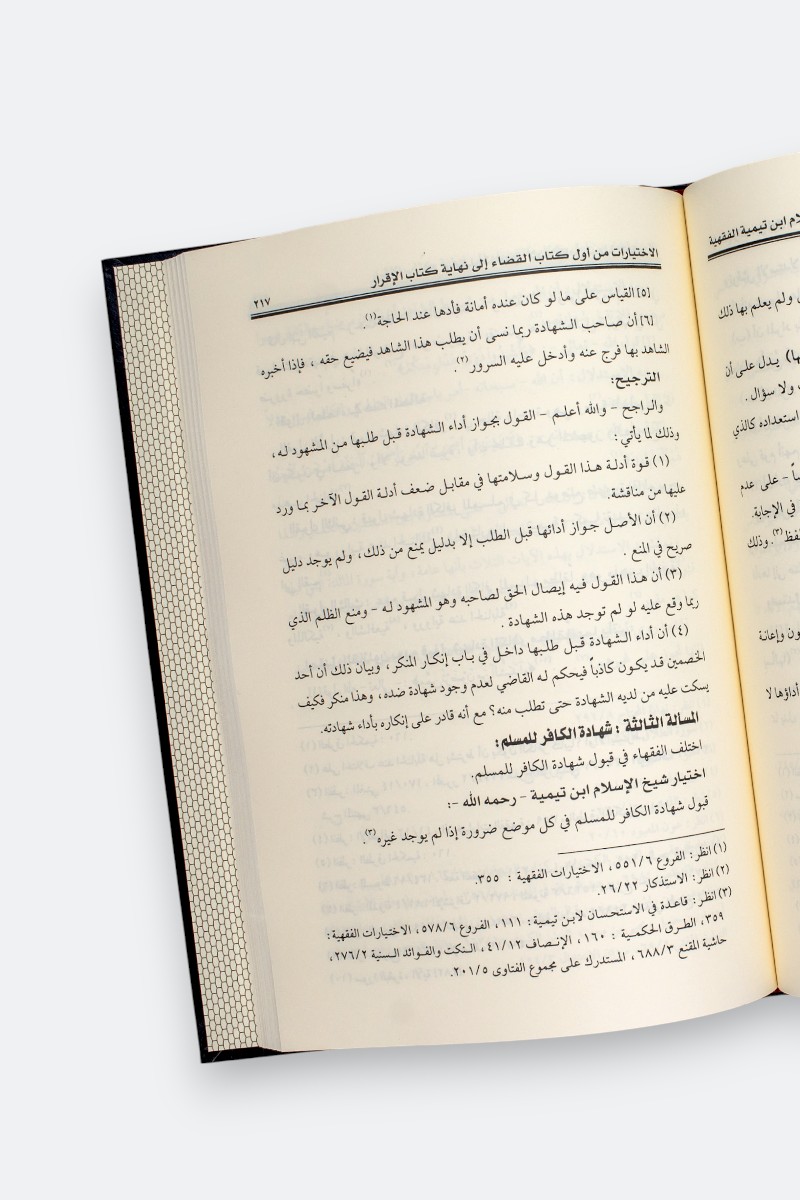 ـلام ابن تيمية الفقهية
ولم يعلم بها ذلك
ـها) يدل على أن
ولا سؤال .
استعداده كالذي
ـاً - على عدم
في الإجابة.
ـفظ(٣). وذلك
ـون وإعانة
أداؤها لا
الاختيارات من أول كتاب القضاء إلى نهاية كتاب الإقرار
٢١٧
[٥] القياس على ما لو كان عنده أمانة فأدها عند الحاجة(١).
[٦] أن صاحب الشهادة ربما نسى أن يطلب هذا الشاهد فيضيع حقه ، فإذا أخبره
الشاهد بها فرج عنه وأدخل عليه السرور(٢).
الترجيح:
والراجح - والله أعلم - القول بجواز أداء الشهادة قبل طلبها من المشهود له،
وذلك لما يأتي :
(١) قوة أدلة هذا القول وسلامتها في مقابل ضعف أدلة القول الآخر بما ورد
عليها من مناقشة.
(٢) أن الأصل جواز أدائها قبل الطلب إلا بدليل يمنع من ذلك، ولم يوجد دليل
صريح في المنع .
(٣) أن هذا القول فيه إيصال الحق لصاحبه وهو المشهود له - ومنع الظلم الذي
ربما وقع عليه لو لم توجد هذه الشهادة .
(٤) أن أداء الشهادة قبل طلبها داخل في باب إنكار المنكر، وبيان ذلك أن أحد
الخصمين قد يكون كاذباً فيحكم له القاضي لعدم وجود شهادة ضده، وهذا منكر فكيف
يسكت عليه من لديه الشهادة حتى تطلب منه؟ مع أنه قادر على إنكاره بأداء شهادته.
المسالة الثالثة : شهادة الكافر للمسلم:
اختلف الفقهاء في قبول شهادة الكافر للمسلم.
اختيار شيخ الإسلام ابن تيمية - رحمه الله -:
قبول شهادة الكافر للمسلم في كل موضع ضرورة إذا لم يوجد غيره(٣).
(١) انظر: الفروع ٥٥١/٦، الاختيارات الفقهية : ٣٥٥.
(٢) انظر: الاستذكار ٢٦/٢٢.
(٣) انظر: قاعدة في الاستحسان لابن تيمية: ١١١، الفروع ٥٧٨/٦، الاختيارات الفقهية:
٣٥٩، الطرق الحكمية : ١٦٠، الإنصاف ٤١/١٢، النكت والفوائد السنية ٢٧٦/٢،
حاشية المقنع ٦٨٨/٣، المستدرك على مجموع الفتاوى ٢٠١/٥.